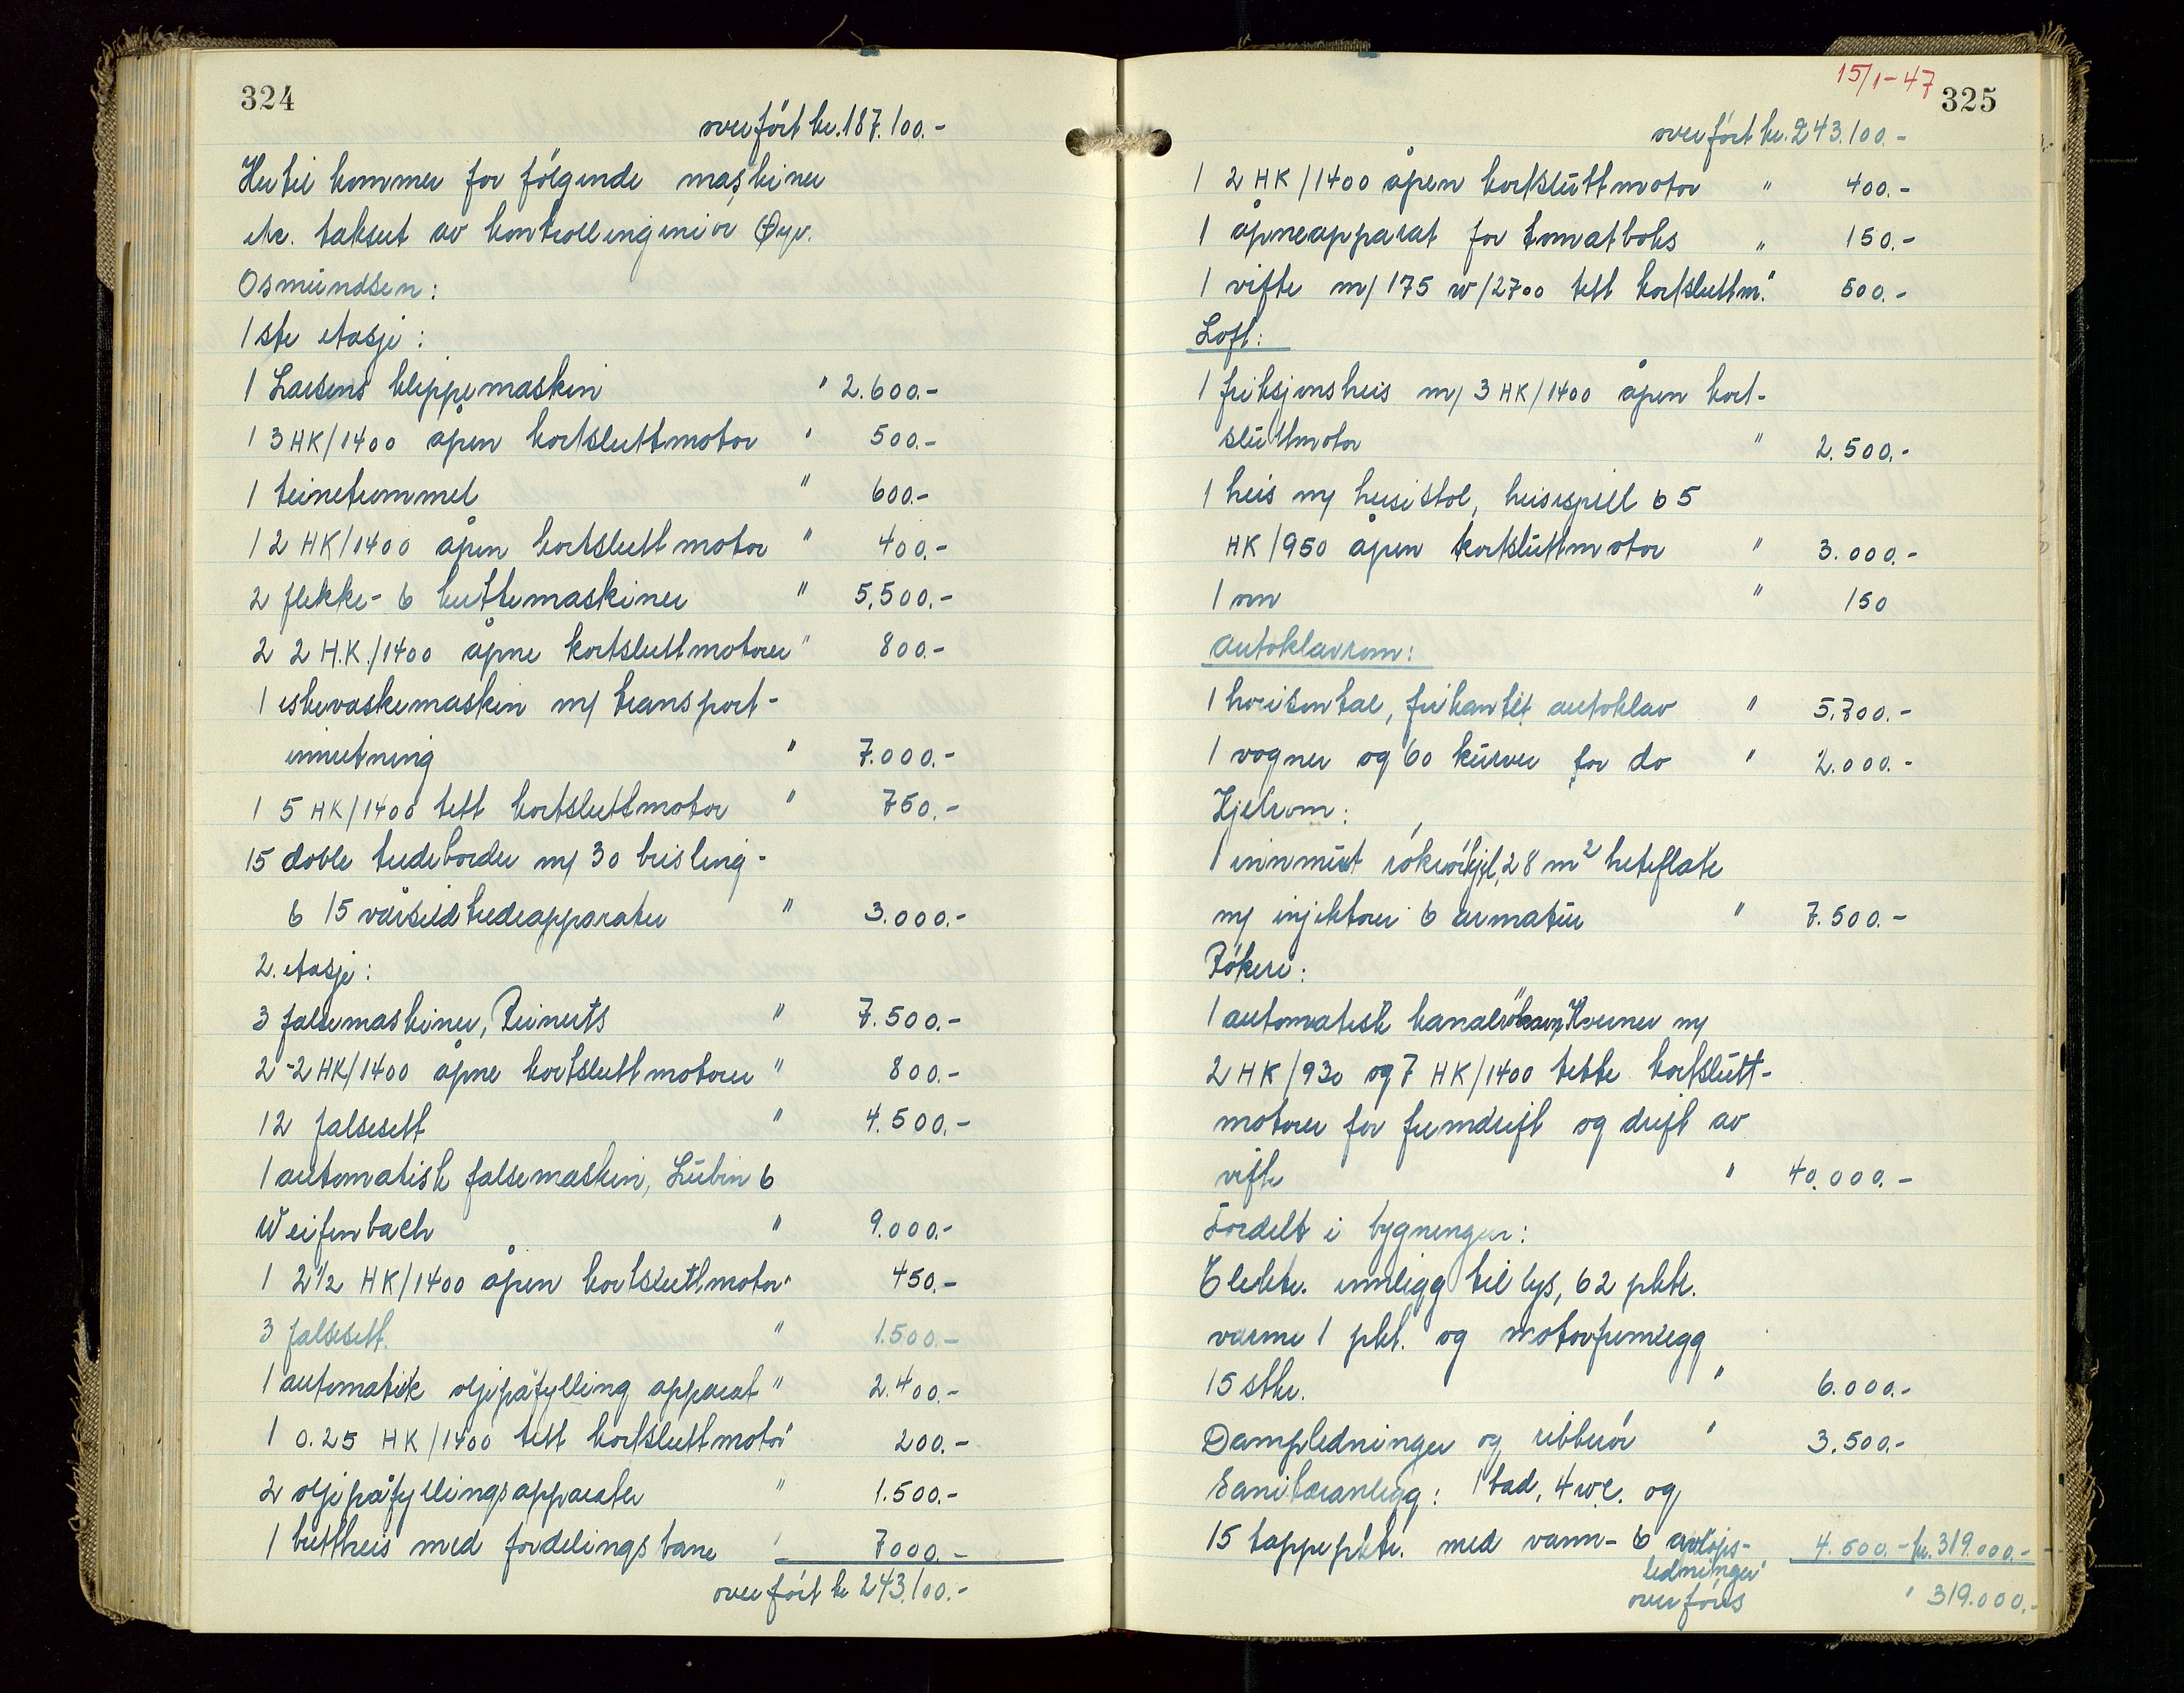 324
overført kr. 187.100.-
Hertil kommer for følgende maskiner
etc. taksert av kontrollingeniør Øyv.
Osmundsen:
1ste etasje:
1 Larsens klippemaskin " 2.600.-
1 3 HK/1400 åpen kortsluttmotor " 500.-
1 teinetrommel " 600.-
1 2 HK/1400 åpen kortsluttmotor " 400.-
2 flekke- & kuttemaskiner " 5.500.-
2 2 H.K./1400 åpne kortsluttmotorer " 800.-
1 eskevaskemaskin m/ transport-
innretning " 7.000.-
1 5 HK/1400 tett kortsluttmotor " 750.-
15 doble tredeborder m/ 30 brisling-
& 15 vårsildtredeapparater " 3.000.-
2. etasje:
3 falsemaskiner, Reinerts " 7.500.-
2 - 2 HK/1400 åpne kortsluttmotorer " 800.-
12 falsesett " 4.500.-
1 automatisk falsemaskin, Lubin &
Weifenbach " 9.000.-
1 2 1/2 HK/1400 åpen kortsluttmotor " 450.-
3 falsesett. " 1.500.-
1 automatisk oljepåfylling apparat " 2.400.-
1 0.25 HK/1400 tett kortsluttmotor " 200.-
2 oljepåfyllingsapparater " 1.500.-
1 brettheis med fordelingsbane " 7000.-
overført kr 243.100.-
15/1-47
325
overført kr. 243.100.-
1 2 HK/1400 åpen kortsluttmotor " 400.-
1 åpneapparat for tomatboks " 150.-
1 vifte m/ 175 w/2700 tett kortsluttm. " 500.-
Loft:
1 friksjonsheis m/ 3 HK/1400 åpen kort-
sluttmotor " 2.500.-
1 heis m/ heisestol, heisespill & 5
HK/950 åpen kortsluttmotor " 3.000.-
1 ovn " 150
Autoklavrom:
1 horisontal, firkantet autoklav " 5.700.-
1 vogner og 60 kurver for do " 2.000.-
Kjelrom:
1 innmurt røkrørkjel, 28 m2 heteflate
m/ injektorer & armatur " 7.500.-
Røkeri:
1 automatisk kanalrøkeovn, Kverner m/
2 HK/930 og 7 HK/1400 tette kortslutt-
motorer for fremdrift og drift av
vifte " 40.000.-
Fordelt i bygningen:
Elektr. innlegg til lys, 62 pktr.
varme 1 pkt. og motorfremlegg
15 stkr. " 6.000.-
Dampledninger og ribberør " 3.500.-
Sanitæranlegg: 1 bad, 4 w.c. og
15 tappepktr. med vann- & avløps-
ledninger 4.500.- kr. 319.000.-
overføres " 319.000.-